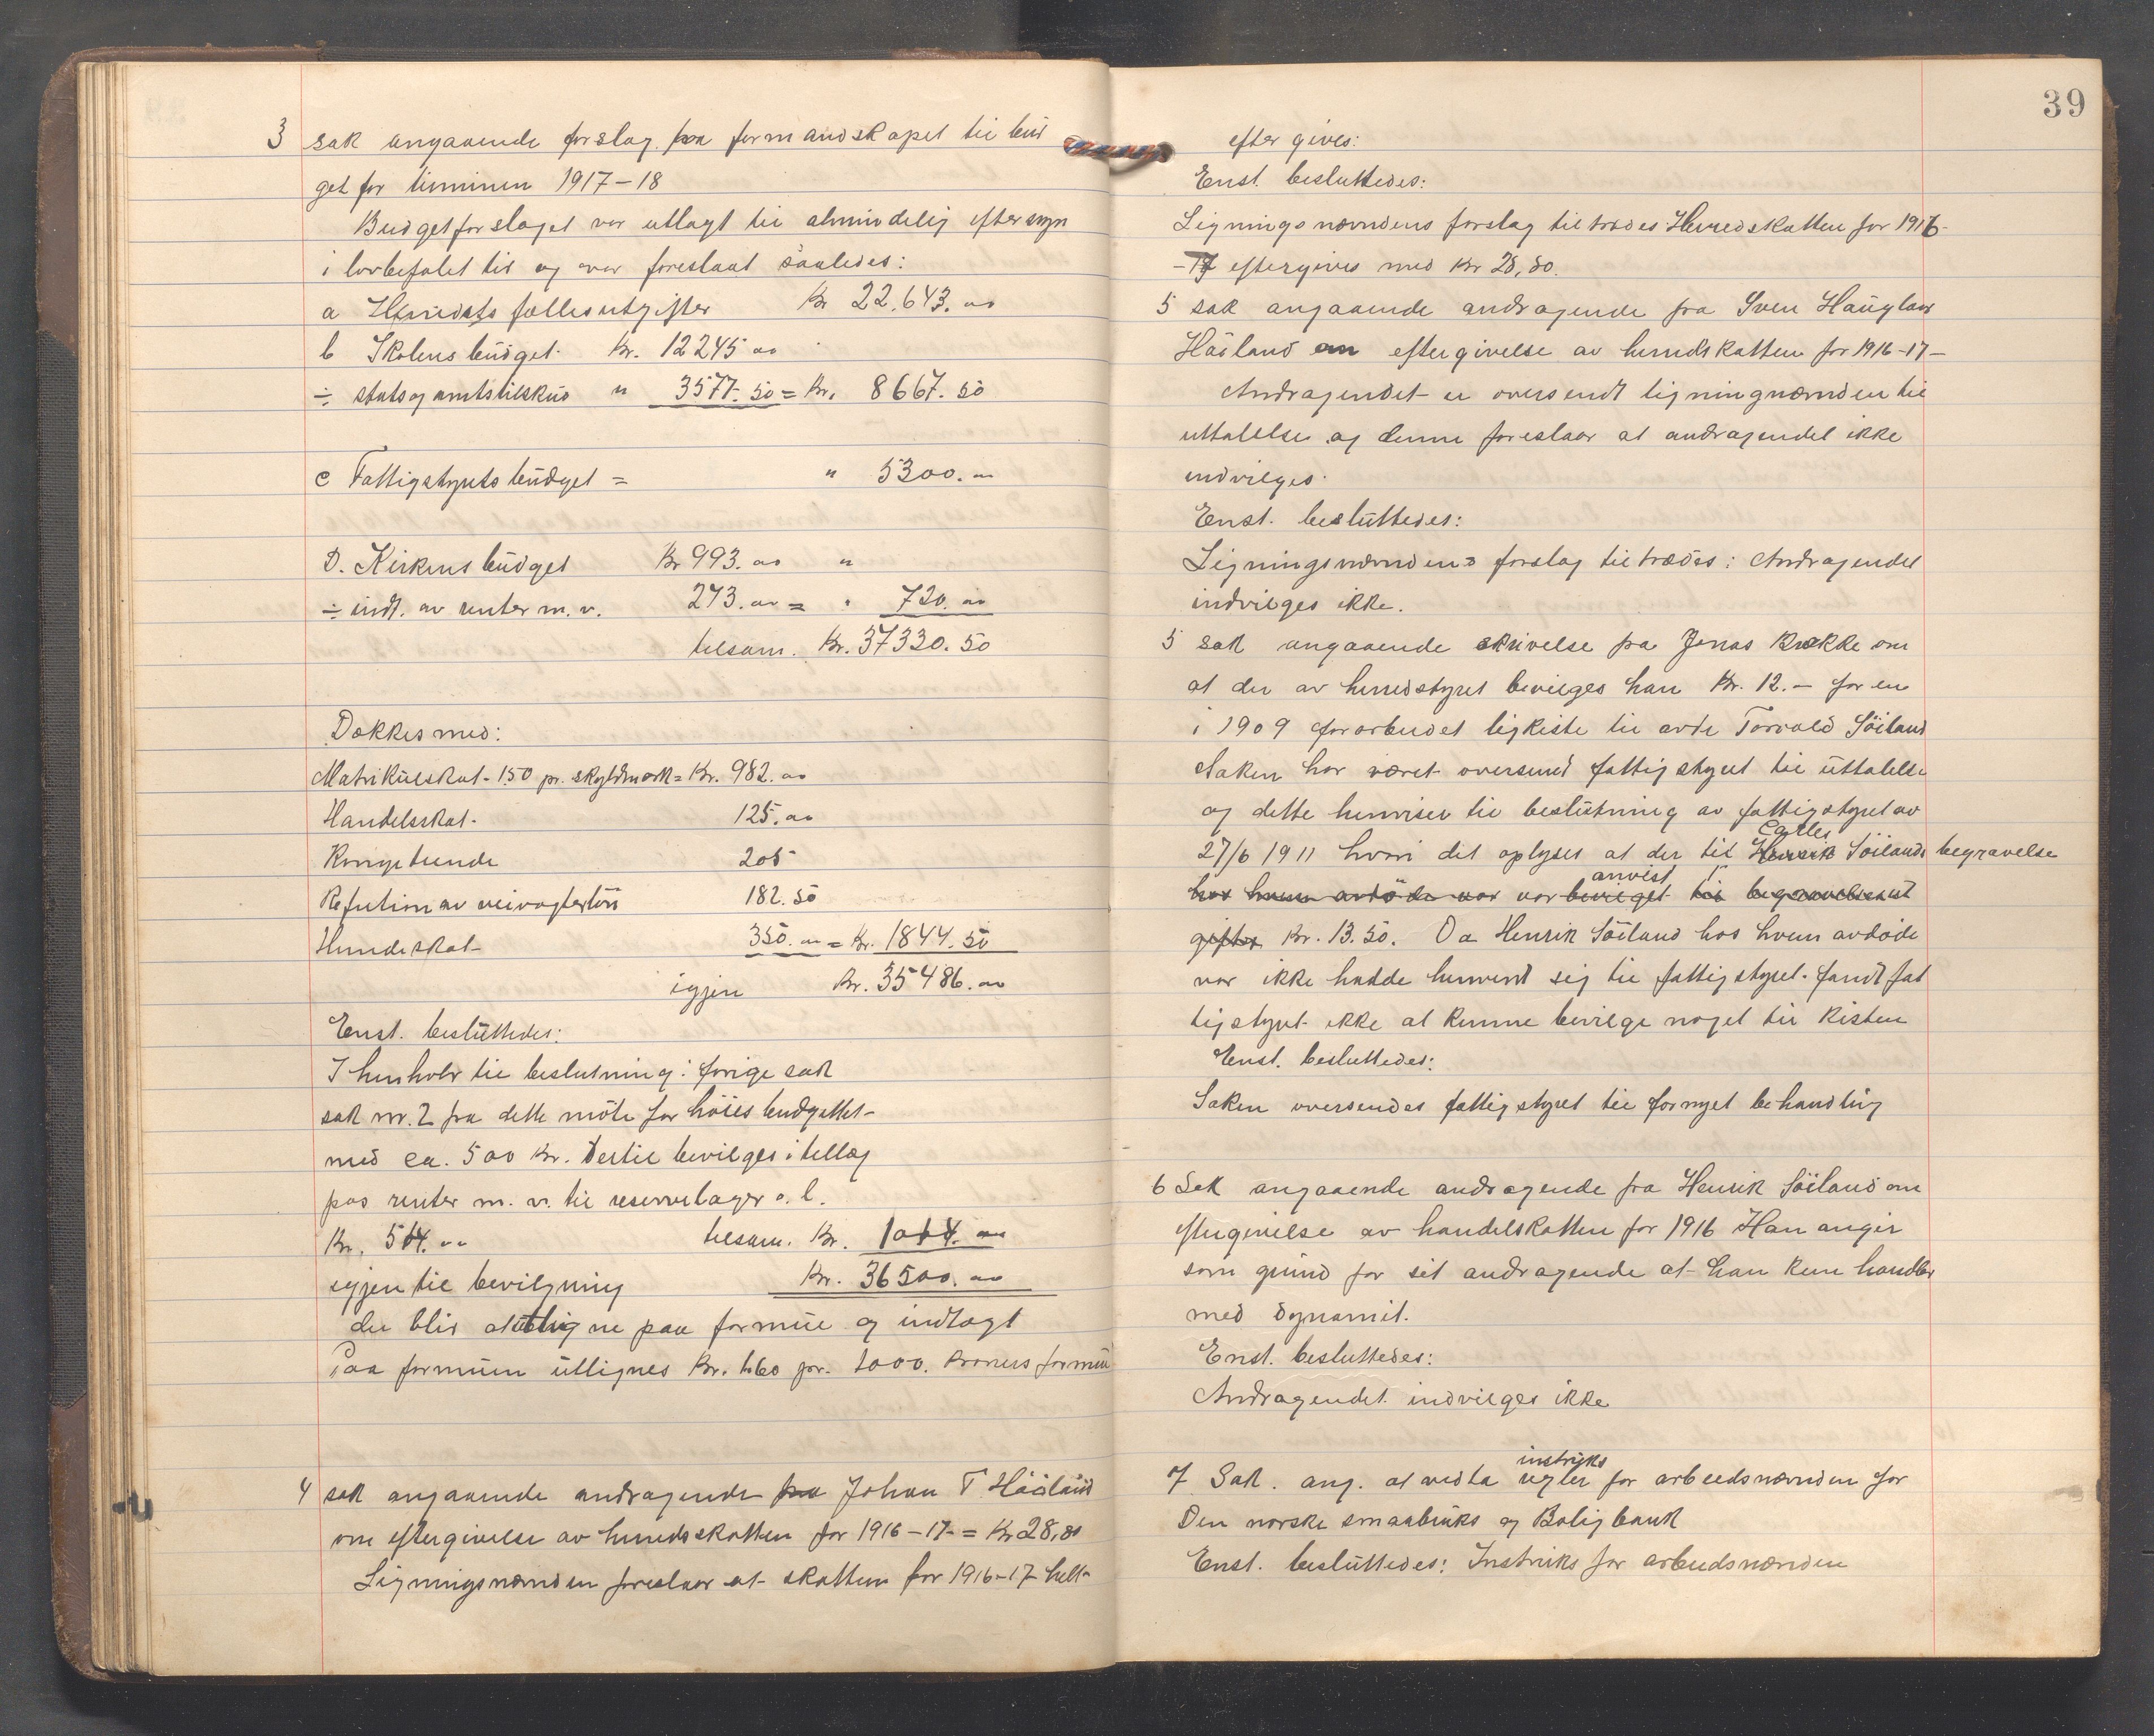 3 sak angaaende forslag fra formandskapet til bud
get for terminen 1917-18
Budgetforslaget var utlagt til almindelig eftersyn
i lovbefalet tid og var foreslaat saaledes:
a Herredets fællesutgifter Kr 22.643.00
b Skolens budget. Kr. 12245 00
÷ stats og amtstilskud " 3577.50 = Kr. 8667.50
c Fattigstyrets budget = " 5300.00
D. Kirkens budget Kr 993.00 "
÷ indt. av renter m.v. 273.00 = " 720.00
tilsam. Kr. 37330.50
Dækkes med:
Matrikulskat 1.50 pr. skyldmark = Kr. 982.00
Handelsskat 125.00
Kongetiende 205
Refution av veivogterløn 182.50
Hundeskat 350.00 = Kr. 1844.50
igjen Kr. 35486.00
Enst. besluttedes:
I henhold til beslutning i forige sak
sak nr. 2 fra dette møte forhöies budgettet
med ca. 500 Kr. Dertil bevilges i tillæg
paa renter m.v. til reservelager o.l.
Kr. 514.00 tilsam. Kr. 1014.00
igjen til bevilgning Kr. 36500.00
der blir at utligne paa formue og indtægt
Paa formuen utlignes Kr. 1.60 pr. 1000. kroners formue
4 sak angaaende andragende fra Johan T. Håiland
om eftergivelse av herredsskatten for 1916-17 = Kr 28,80
Ligningsnævnden foreslaar at skatten for 1916-17 helt
39
eftergives:
Enst. besluttedes:
Ligningsnævndens forslag tiltrædes Herredskatten for 1916-
-17 eftergives med Kr 28,80.
5 sak angaaende andragende fra Sven Haugland
Håiland om eftergivelse av herredskatten for 1916-17-
Andragendet er oversendt ligningnævnden til
uttalelse og denne foreslaar at andragendet ikke
indvilges.
Enst. besluttedes:
Ligningsnævndens forslag tiltrædes: Andragendet
indvilges ikke.
5 sak angaaende skrivelse fra Jonas Brekke om
at der av herredstyret bevilges han Kr. 12.- for en
i 1909 forarbeidet ligkiste til avde Torvald Söiland
Saken har været oversendt fattigstyret til uttalelse
og dette henviser til beslutning av fattigstyret av
27/6 1911 hvori det oplyses at der til Henrik Söilands begravelse
hos hvem avdöde var var anvist bevilget til begravelsesut
gifter Kr. 13.50. Da Henrik Söiland hos hvem avdøde
var ikke hadde henvendt sig til fattigstyret. fandt fat
tigstyret ikke at kunne bevilge noget til kisten
Enst. besluttedes:
Saken oversendes fattigstyret til fornyet behandling
6 Sak angaaende andragende fra Henrik Söiland om
eftergivelse av handelskatten for 1916 Han angir
som grund for sit andragende at han kun handler
med dynamit.
Enst. besluttedes:
Andragendet indvilges ikke
instruks
7 Sak. ang. at vedta regler for arbeidsnævnden for
Den norske smaabruks og Boligbank
Enst. besluttedes: Instruks for arbeidsnævnden